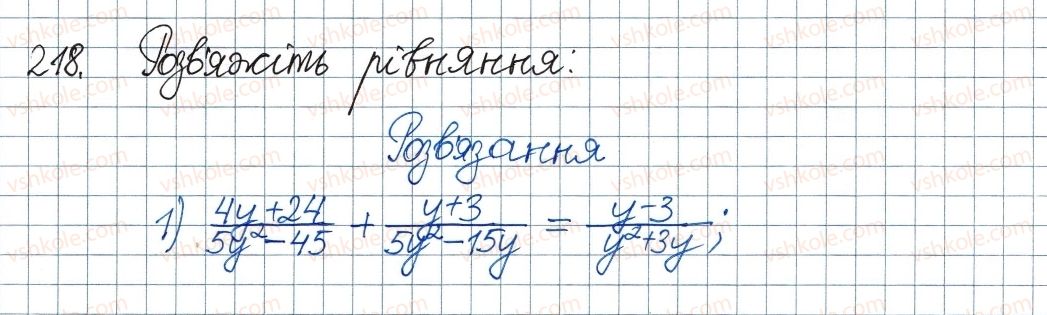 218. Розв'яжіть рівняння:
Розв'язання
1) (4y+24)/(5y²-45) + (y+3)/(5y²-15y) = (y-3)/(y²+3y);